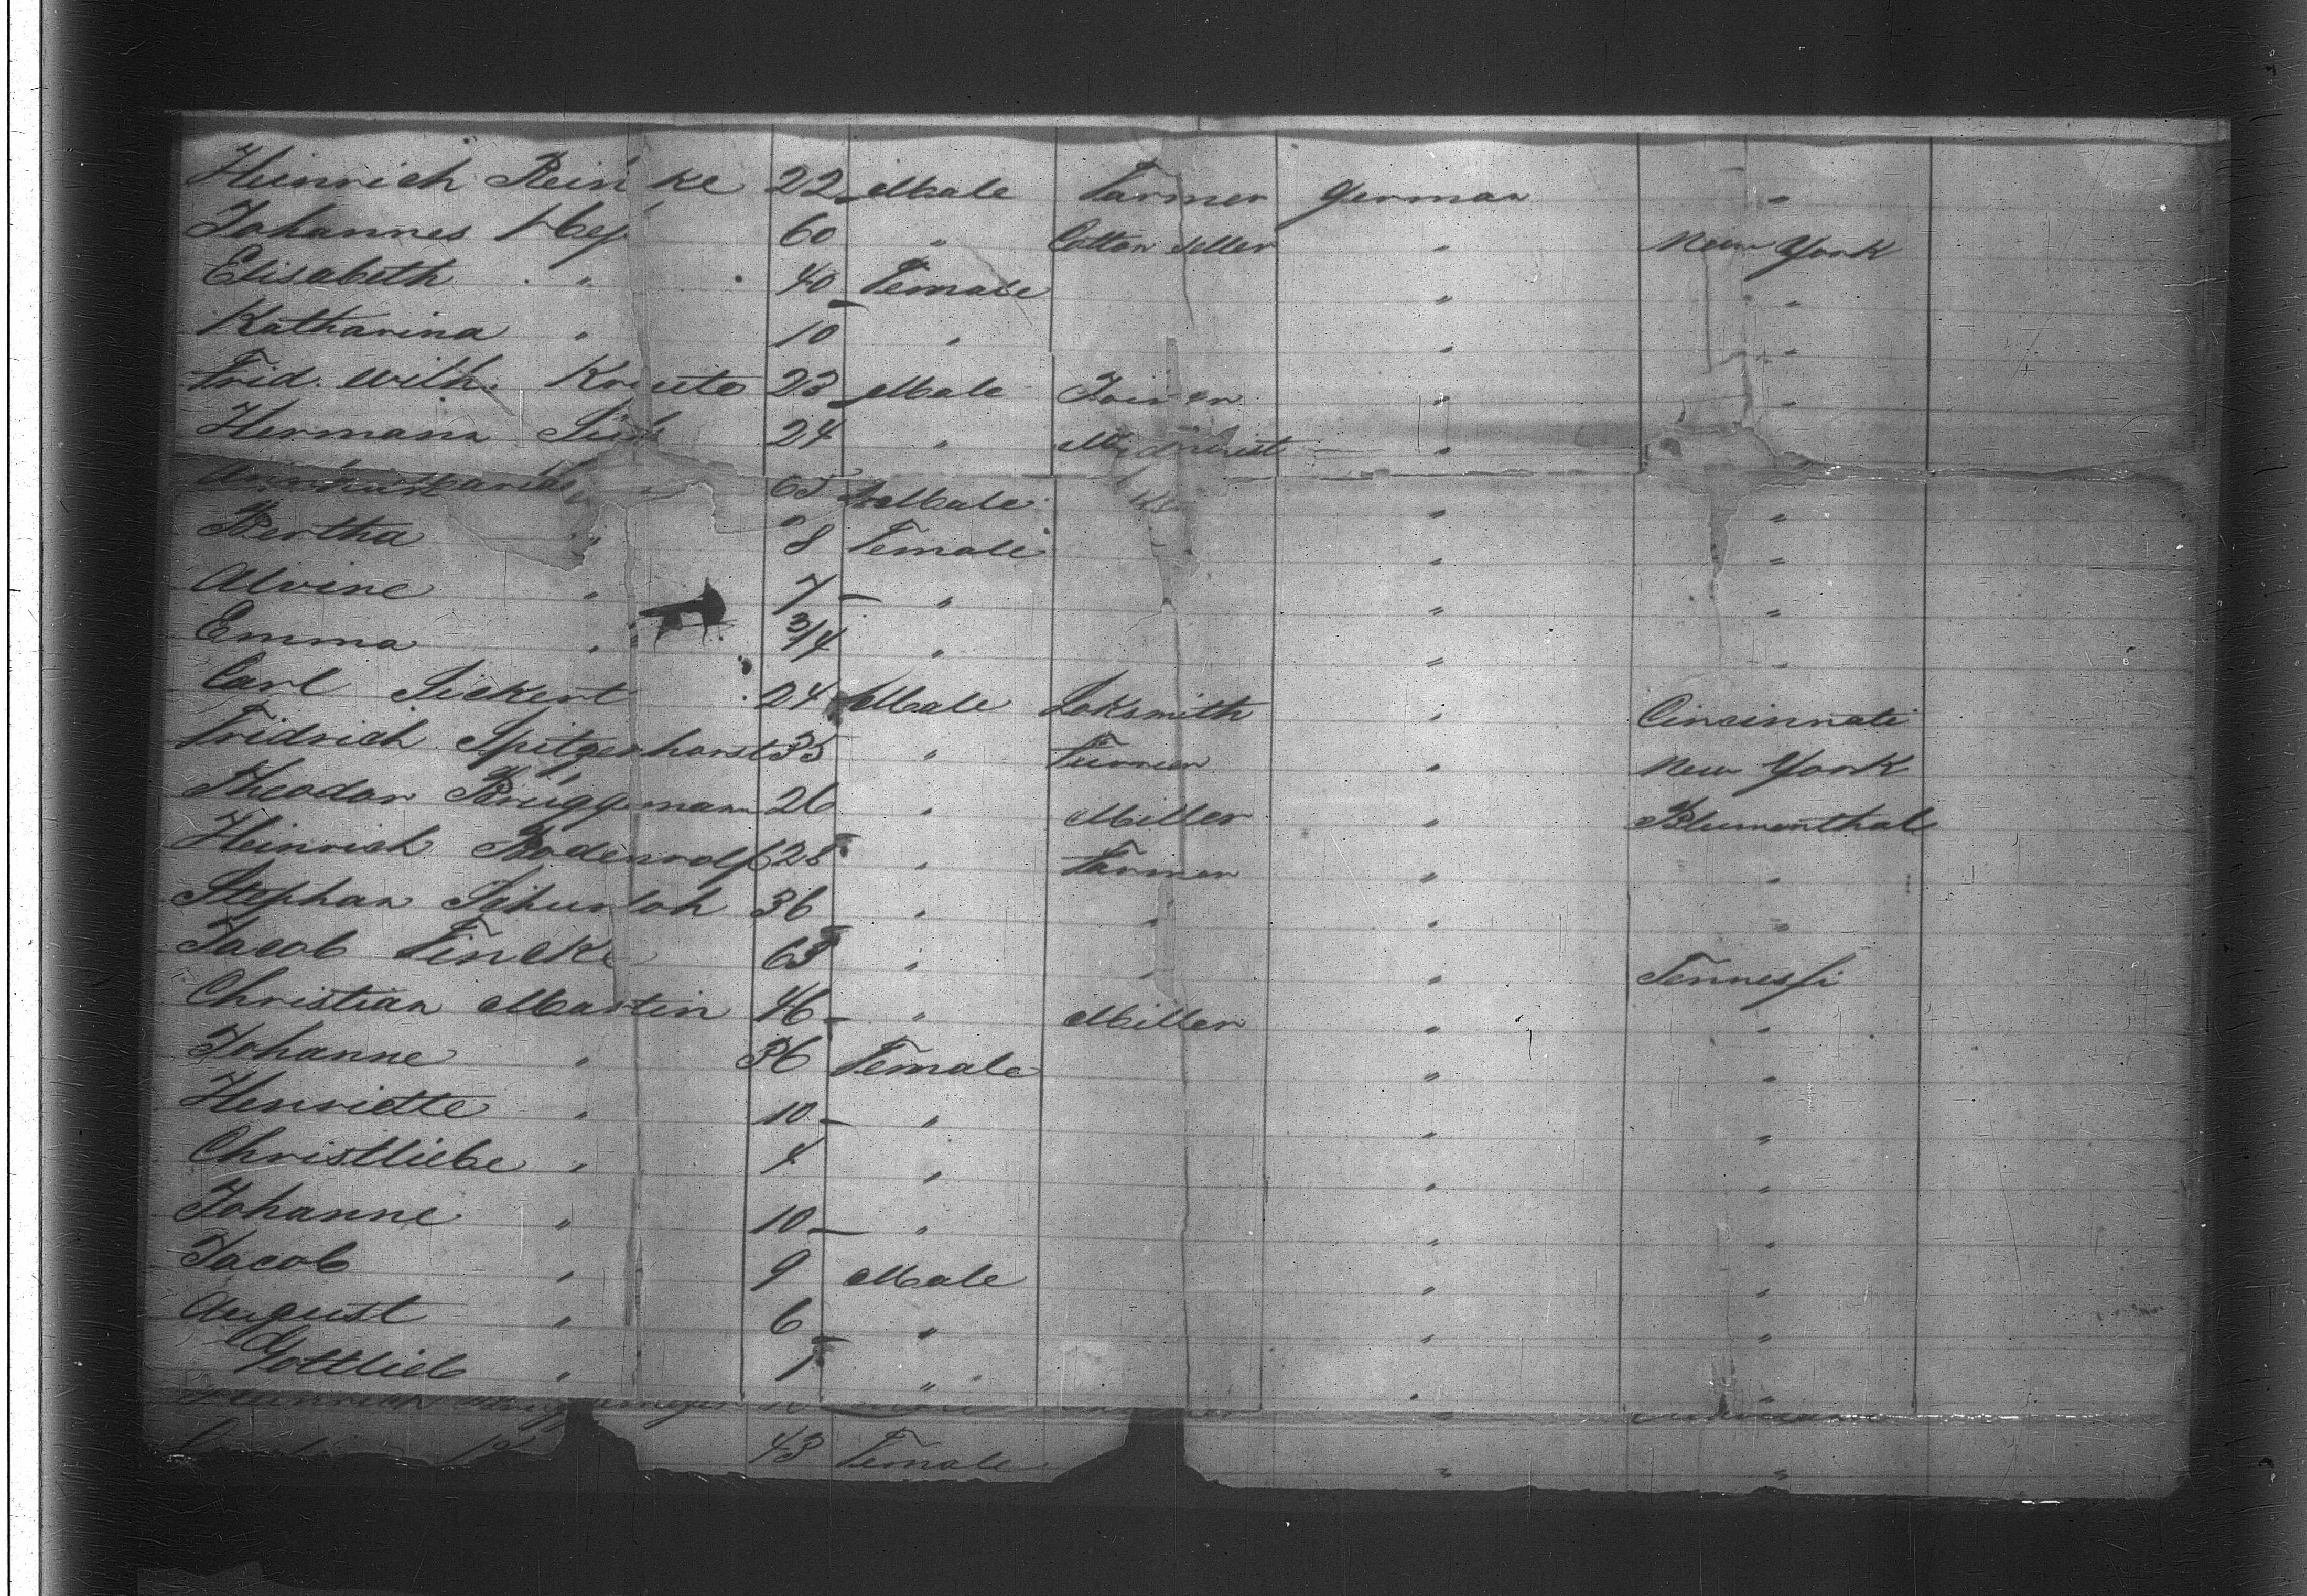 Heinrich Rein ke 22 Male Farmer German "
Johannes 60 " Cotton seller " New York
Elisabeth " 40 Female " "
Katharina " 10 " " "
Frid. Wilh. 23 Male " "
Hermann 24 " " "
Male " "
Bertha " 8 Female " "
Alvine " 7 " " "
Emma " 3/4 " " "
Carl Sickert 24 Male Loksmith " Cincinnati
Fridrich Spitzenharst 35 " " New York
Theodor Brüggemann 26 " Miller " Blumenthal
Heinrich Bodenrolf 28 " Farmer " "
Stephan 36 " " " "
Jacob Fincke 63 " " " Tennessi
Christian Martin 46 " Miller " "
Johanne " 36 Female " "
Henriette " 10 " " "
Christliebe " 4 " " "
Johanne " 10 " " "
Jacob " 9 Male " "
August " 6 " " "
Gottlieb " " " "
Heinrich "
43 Female " "